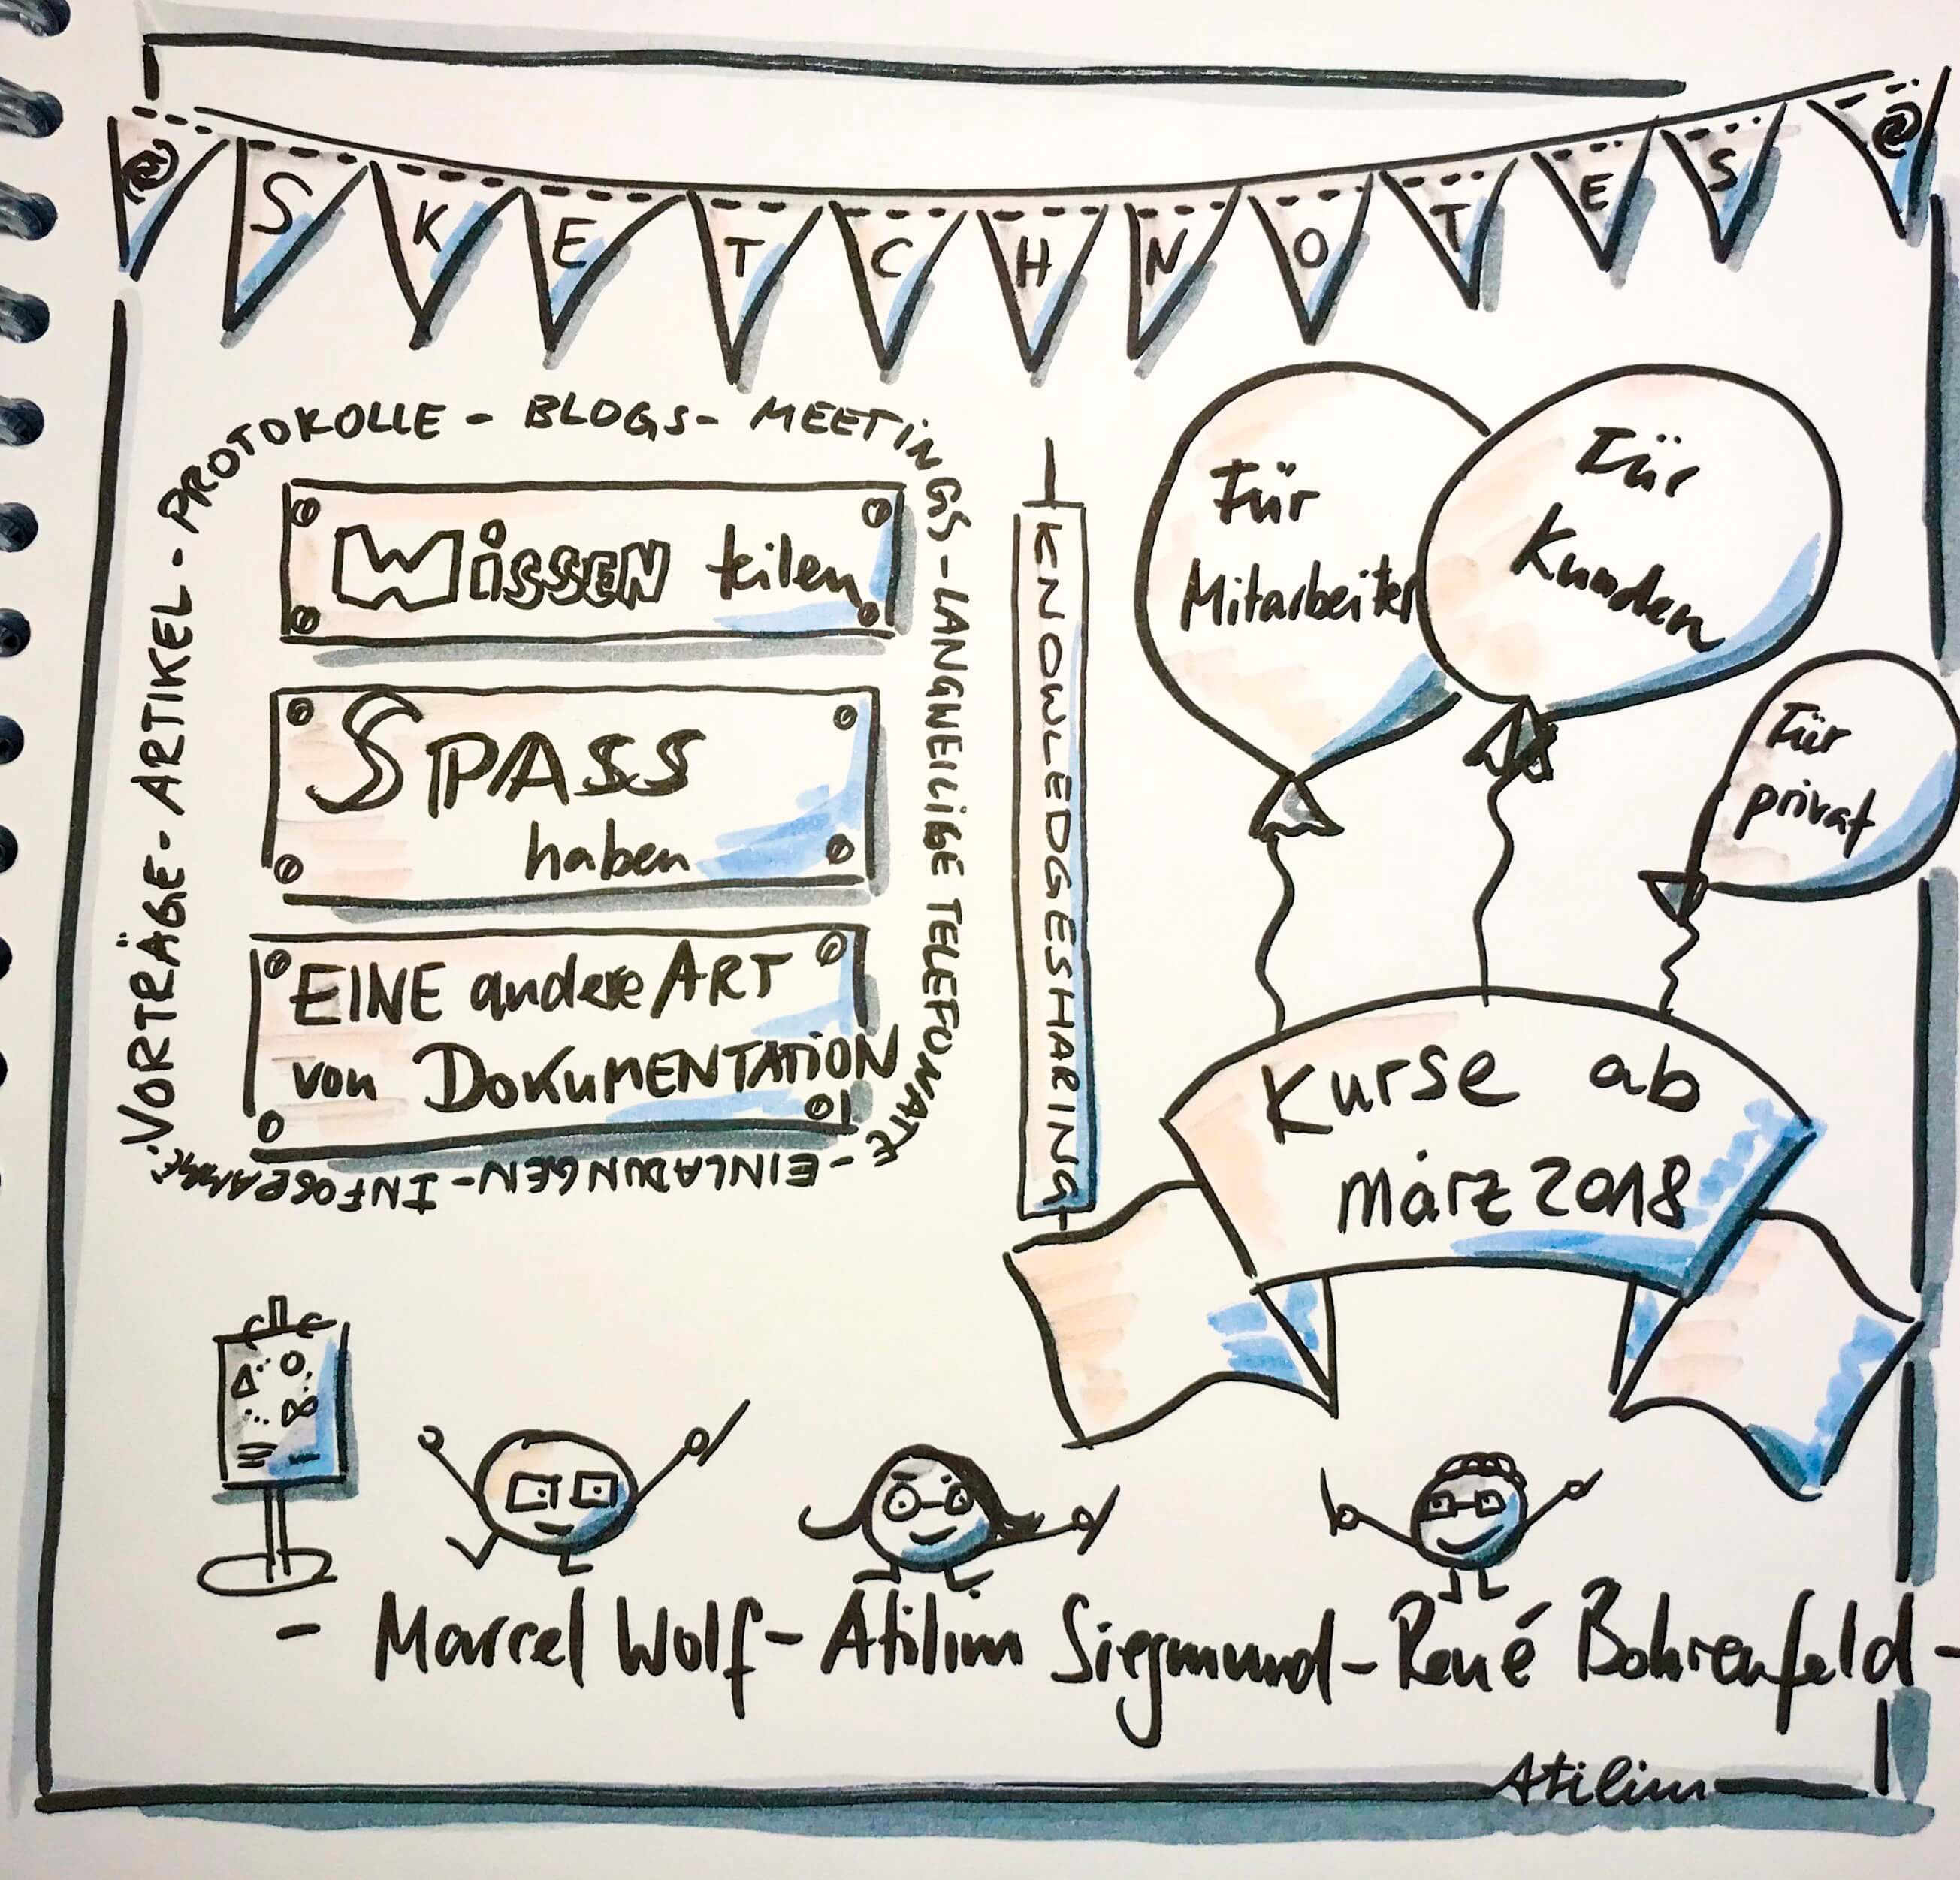 @ SKETCHNOTES @
VORTRÄGE - ARTIKEL - PROTOKOLLE - BLOGS - MEETINGS - LANGWEILIGE TELEFONATE - EINLADUNGEN - INFOGRAMME -
WiSSEN teilen
SPASS
haben
EINE andere ART
von DOKUMENTATiON
KNOWLEDGESHARING
Für
Mitarbeiter
Für
Kunden
Für
privat
Kurse ab
März 2018
- Marcel Wolf - Atilim Siegmund - René Bohrenfeld -
Atilim